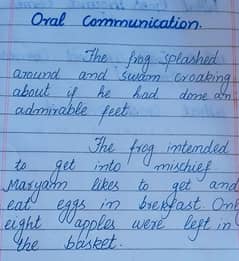 Oral Communication.
The frog splashed
around and swam croaking
about if he had done an
admirable feet.
The frog intended
to get into mischief.
Maryam likes to get and
eat eggs in brekfast. Onl
eight apples were left in
the basket.